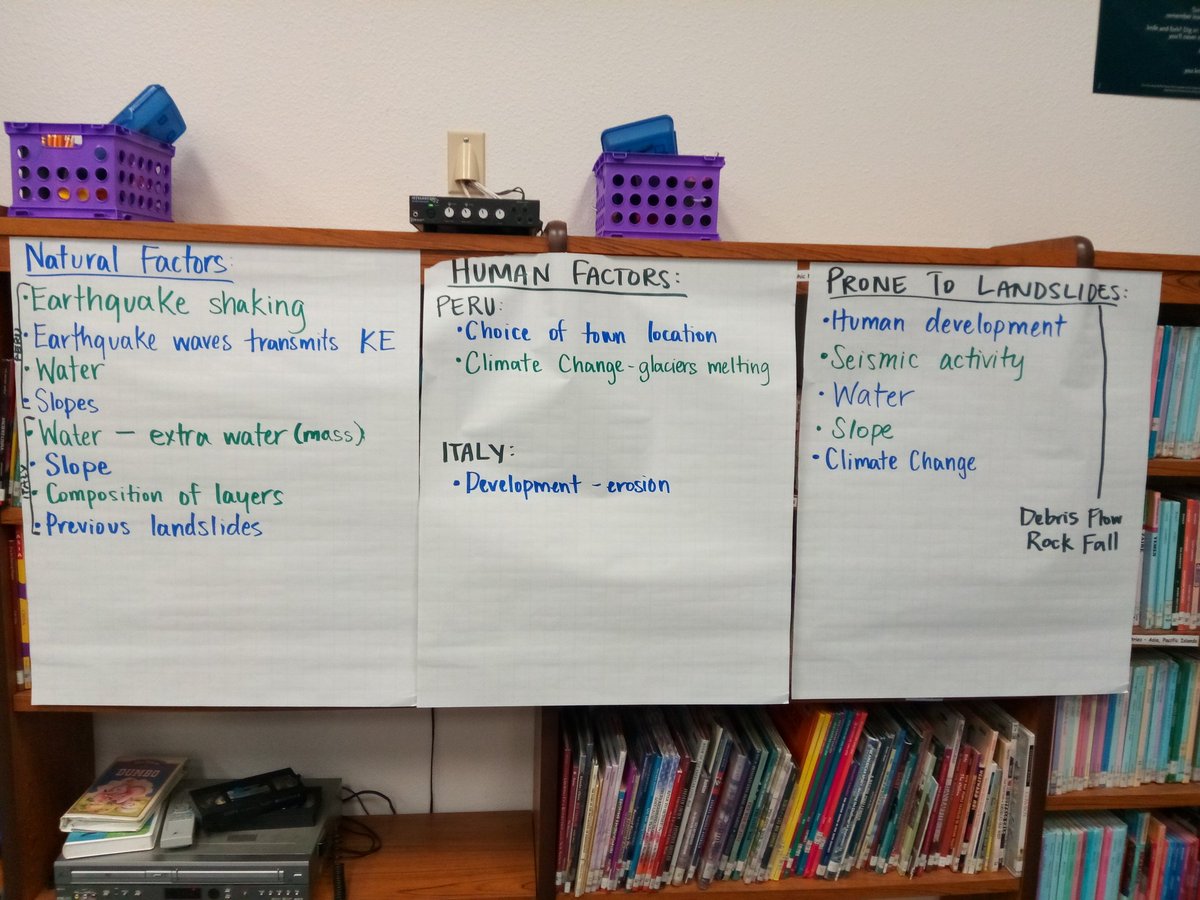 Natural Factors:
PERU
• Earthquake shaking
• Earthquake waves transmits KE
• Water
• Slopes
ITALY
• Water — extra water (mass)
• Slope
• Composition of layers
• Previous landslides
HUMAN FACTORS:
PERU:
• Choice of town location
• Climate Change - glaciers melting
ITALY:
• Development - erosion
PRONE TO LANDSLIDES:
• Human development
• Seismic activity
• Water
• Slope
• Climate Change
Debris Flow
Rock Fall
Asia, Pacific Islands
DUMBO